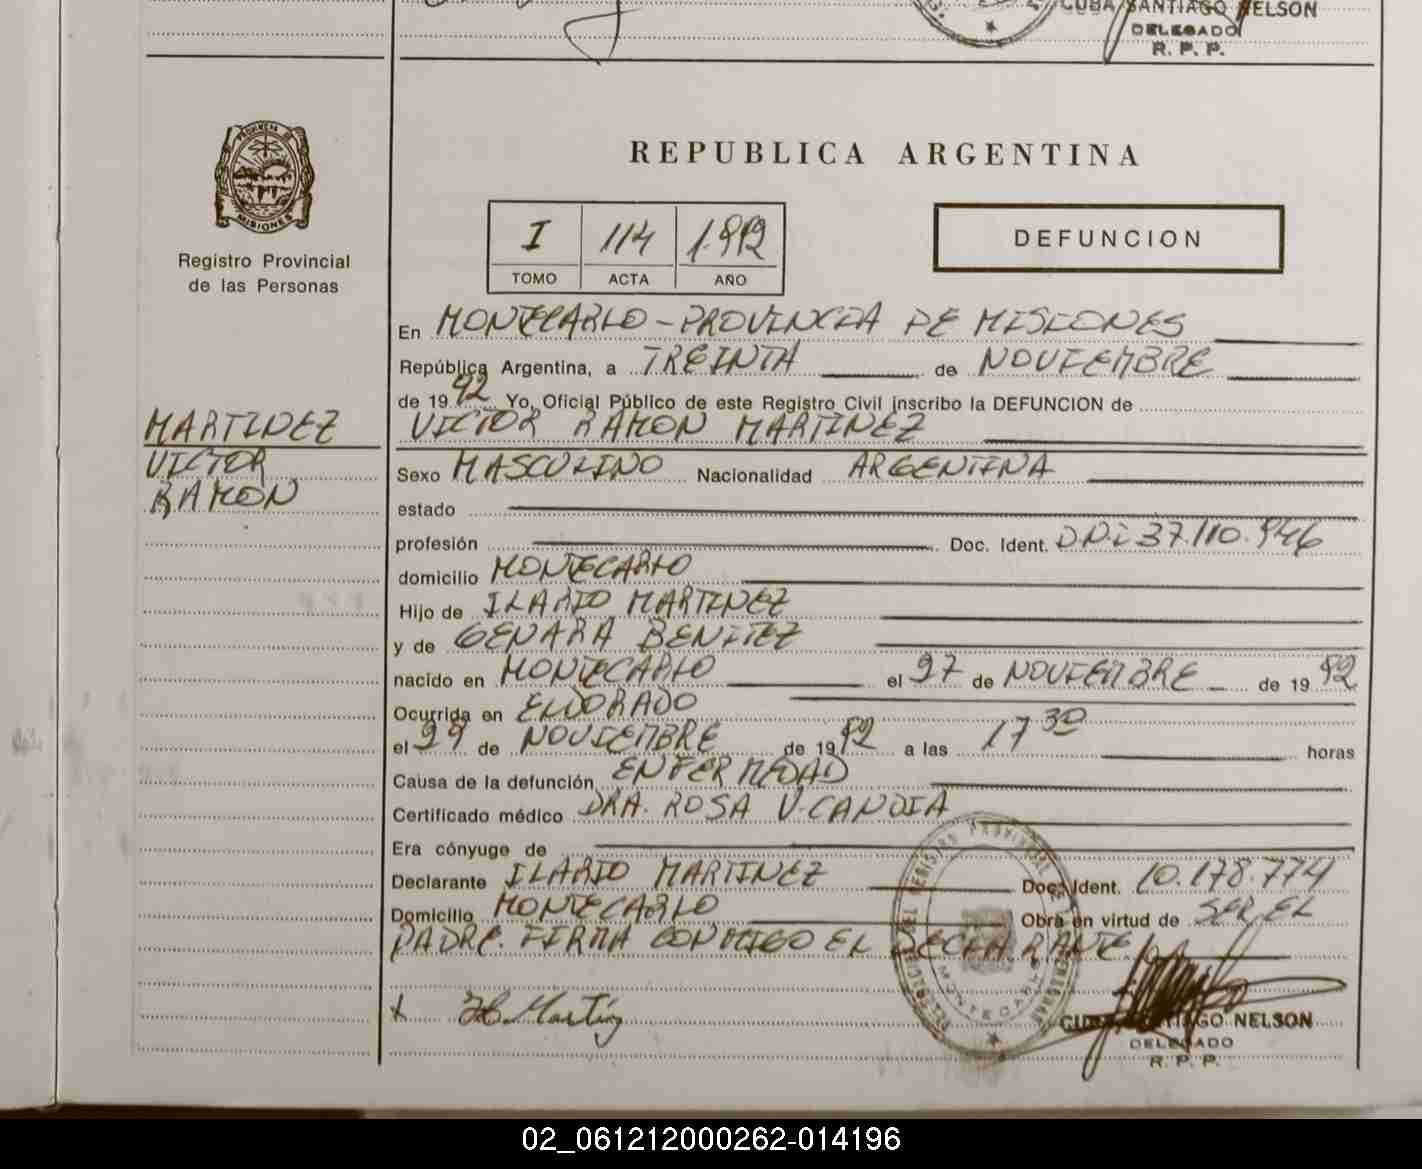 CUBA SANTIAGO NELSON
DELEGADO
R. P. P.
PROVINCIA DE
MISIONES
Registro Provincial
de las Personas
REPUBLICA ARGENTINA
I 114 1992
TOMO ACTA AÑO
DEFUNCION
En MONTECARLO - PROVINCIA DE MISIONES
República Argentina, a TREINTA de NOVIEMBRE
de 1992 Yo, Oficial Público de este Registro Civil inscribo la DEFUNCION de
MARTINEZ
VICTOR
RAMON
VICTOR RAMON MARTINEZ
Sexo MASCULINO Nacionalidad ARGENTINA
estado
profesión Doc. Ident. DNI 37.110.946
domicilio MONTECARLO
Hijo de ILARIO MARTINEZ
y de GENARA BENITEZ
nacido en MONTECARLO el 27 de NOVIEMBRE de 1992
Ocurrida en ELDORADO
el 29 de NOVIEMBRE de 1992 a las 17 30 horas
Causa de la defunción ENFERMEDAD
Certificado médico DRA. ROSA V. CANDIA
Era cónyuge de
Declarante ILARIO MARTINEZ Doc. Ident. 10.178.774
Domicilio MONTECARLO Obra en virtud de SER EL
PADRE. FIRMA CONMIGO EL DECLARANTE
MONTECARLO
CUBA SANTIAGO NELSON
DELEGADO
R. P. P.
02_061212000262-014196